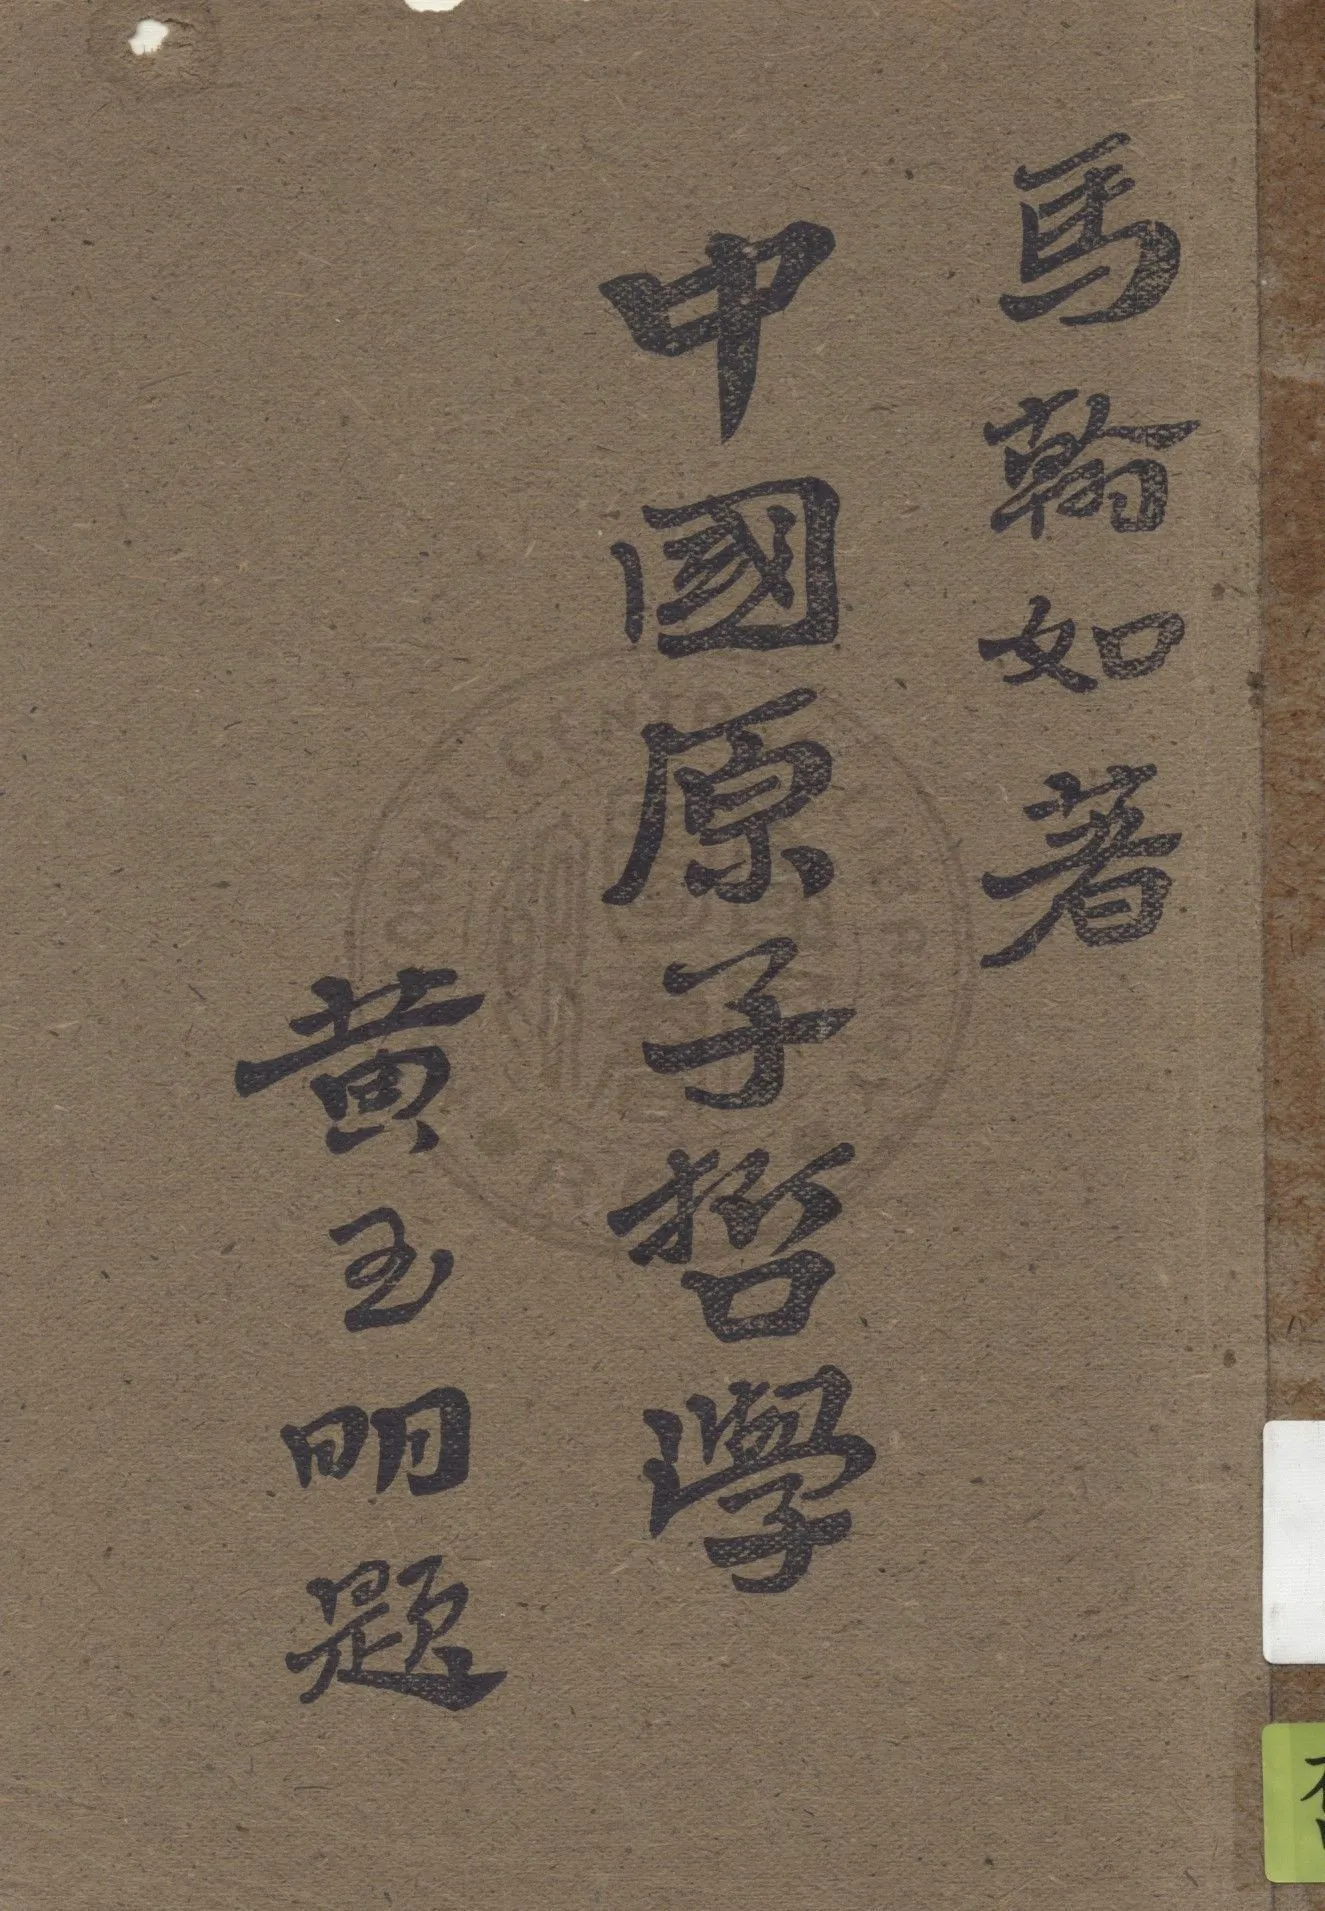 馬翰如著
中國原子哲學
黃玉明題